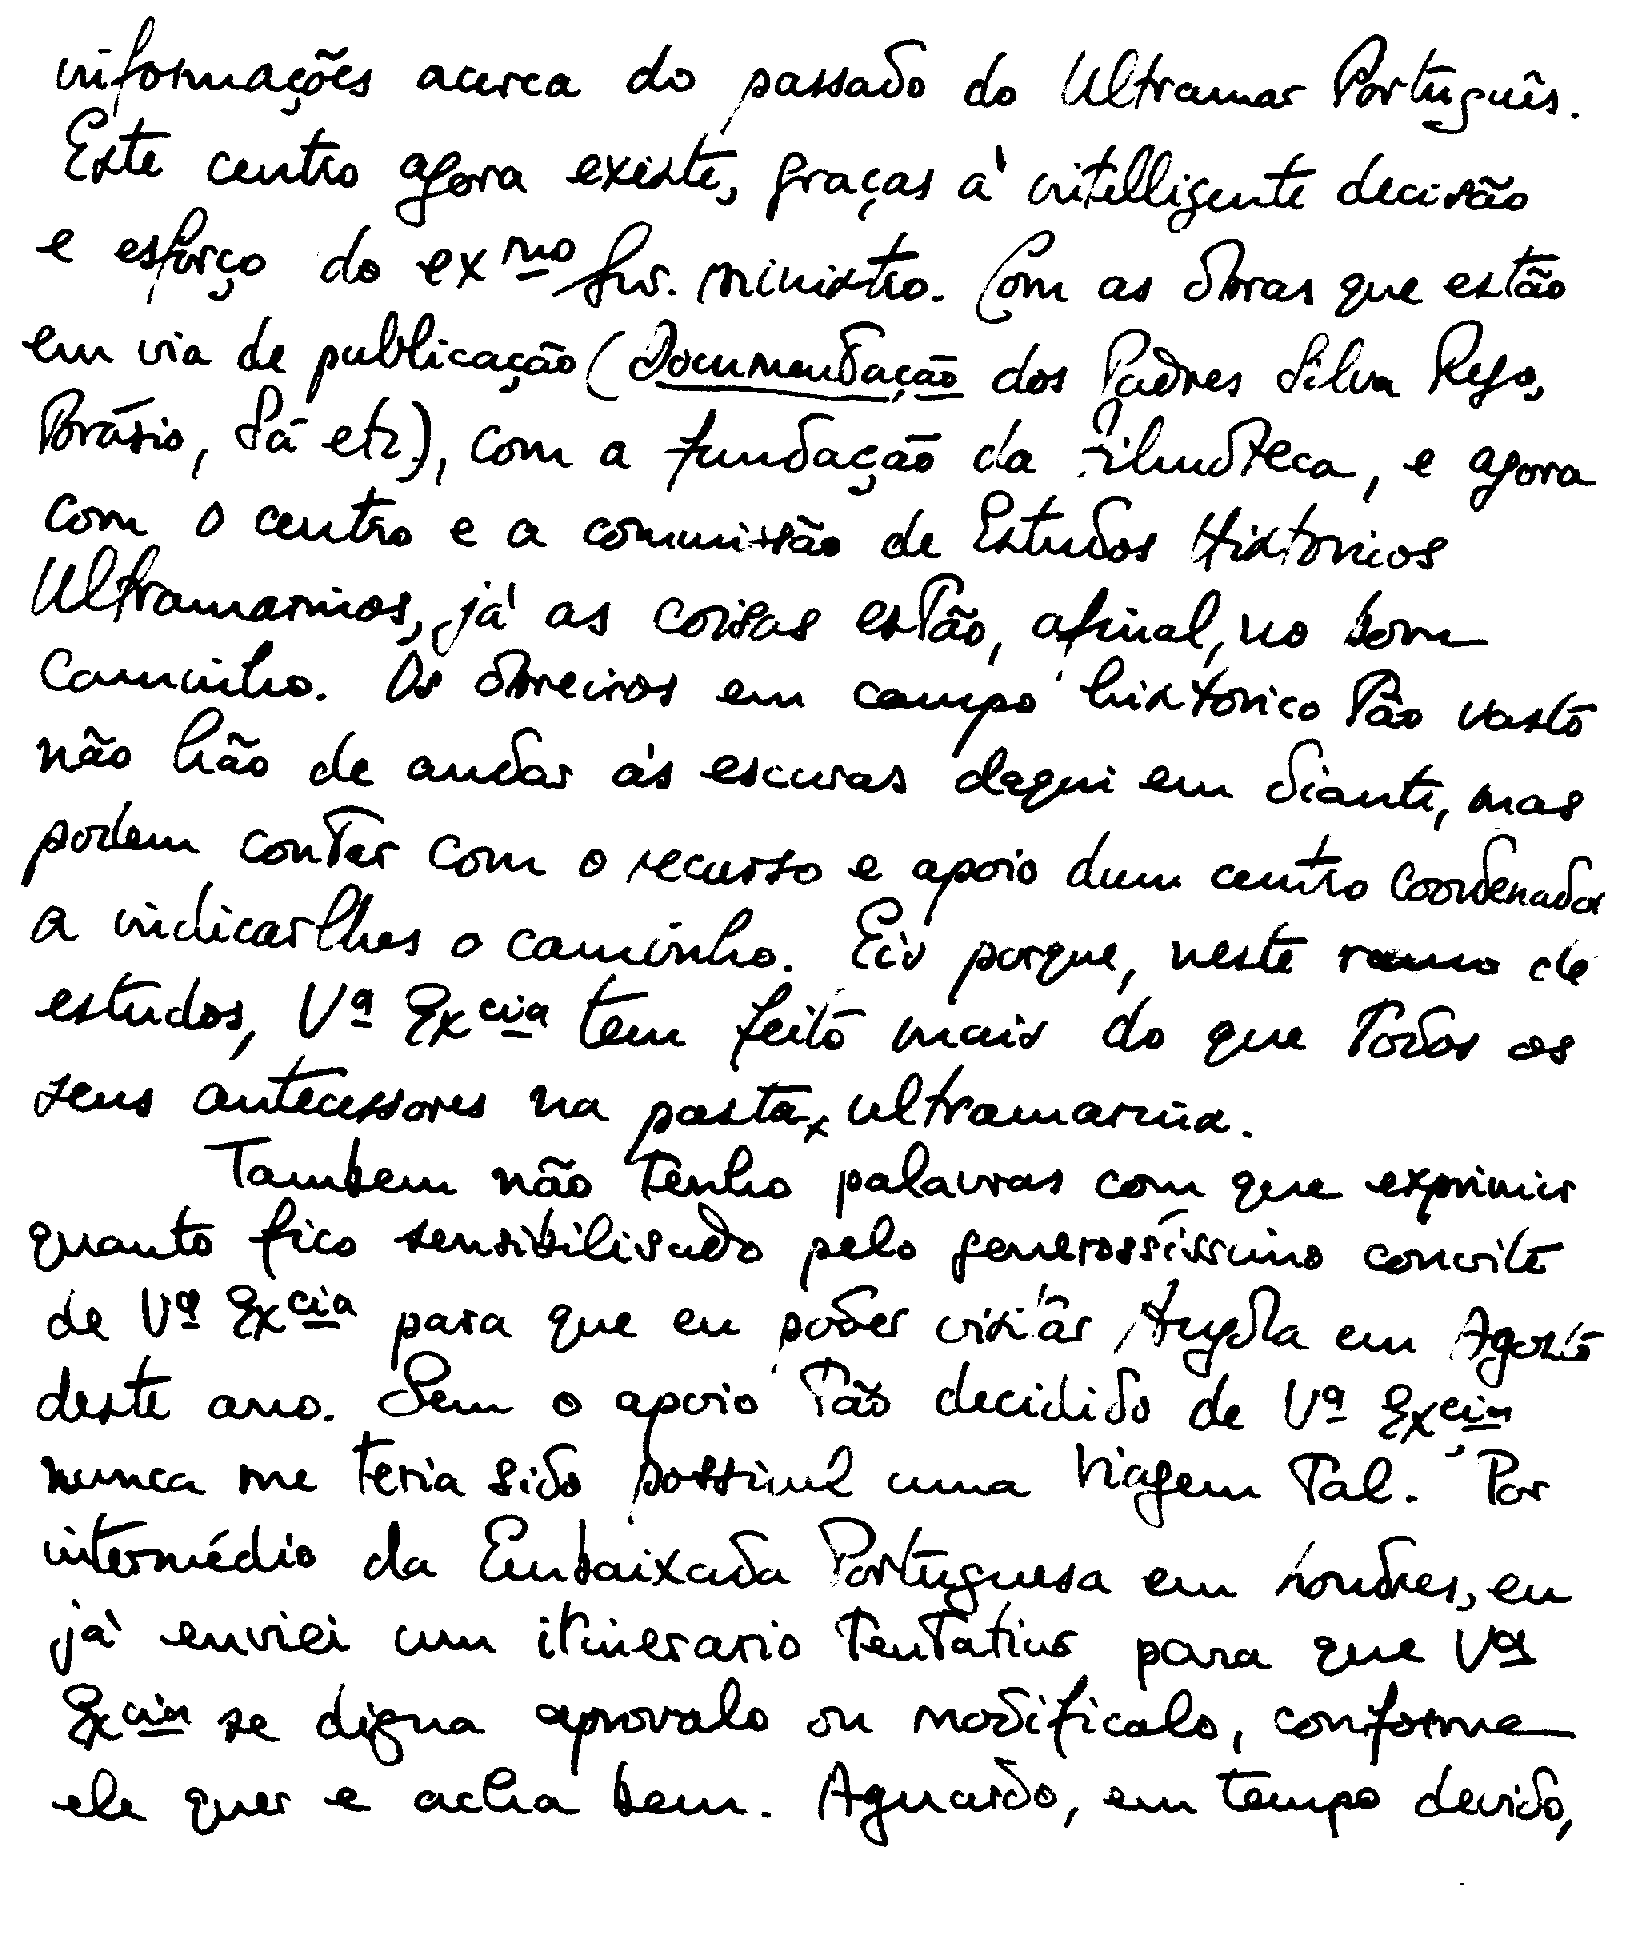 informações acerca do passado do Ultramar Português.
Este centro agora existe, graças à intelligente decisão
e esforço do exmo Snr. ministro. Com as obras que estão
em via de publicação (Documentação dos Padres Silva Rego,
Brásio, Sá etc.), com a fundação da Filmoteca, e agora
com o centro e a comissão de Estudos Históricos
Ultramarinos, já as coisas estão, afinal, no bom
caminho. Os obreiros em campo histórico tão vasto
não hão de andar ás escuras daqui em diante, mas
podem contar com o recurso e apoio dum centro coordenador
a indicarlhes o caminho. Eis porque, neste ramo de
estudos, Vª Excia tem feito mais do que todos os
seus antecessores na pasta ultramarina.
Tambem não tenho palavras com que exprimir
quanto fico sensibilisado pelo generossíssimo convite
de Vª Excia para que eu poder visitar Angola em Agosto
deste ano. Sem o apoio tão decidido de Vª Excia
nunca me teria sido possivel uma viagem tal. Por
intermédio da Embaixada Portuguesa em Londres, eu
já enviei um itinerario tentativo para que Vª
Excia se digna aprovalo ou modificalo, conforme
ele quer e acha bem. Aguardo, em tempo devido,